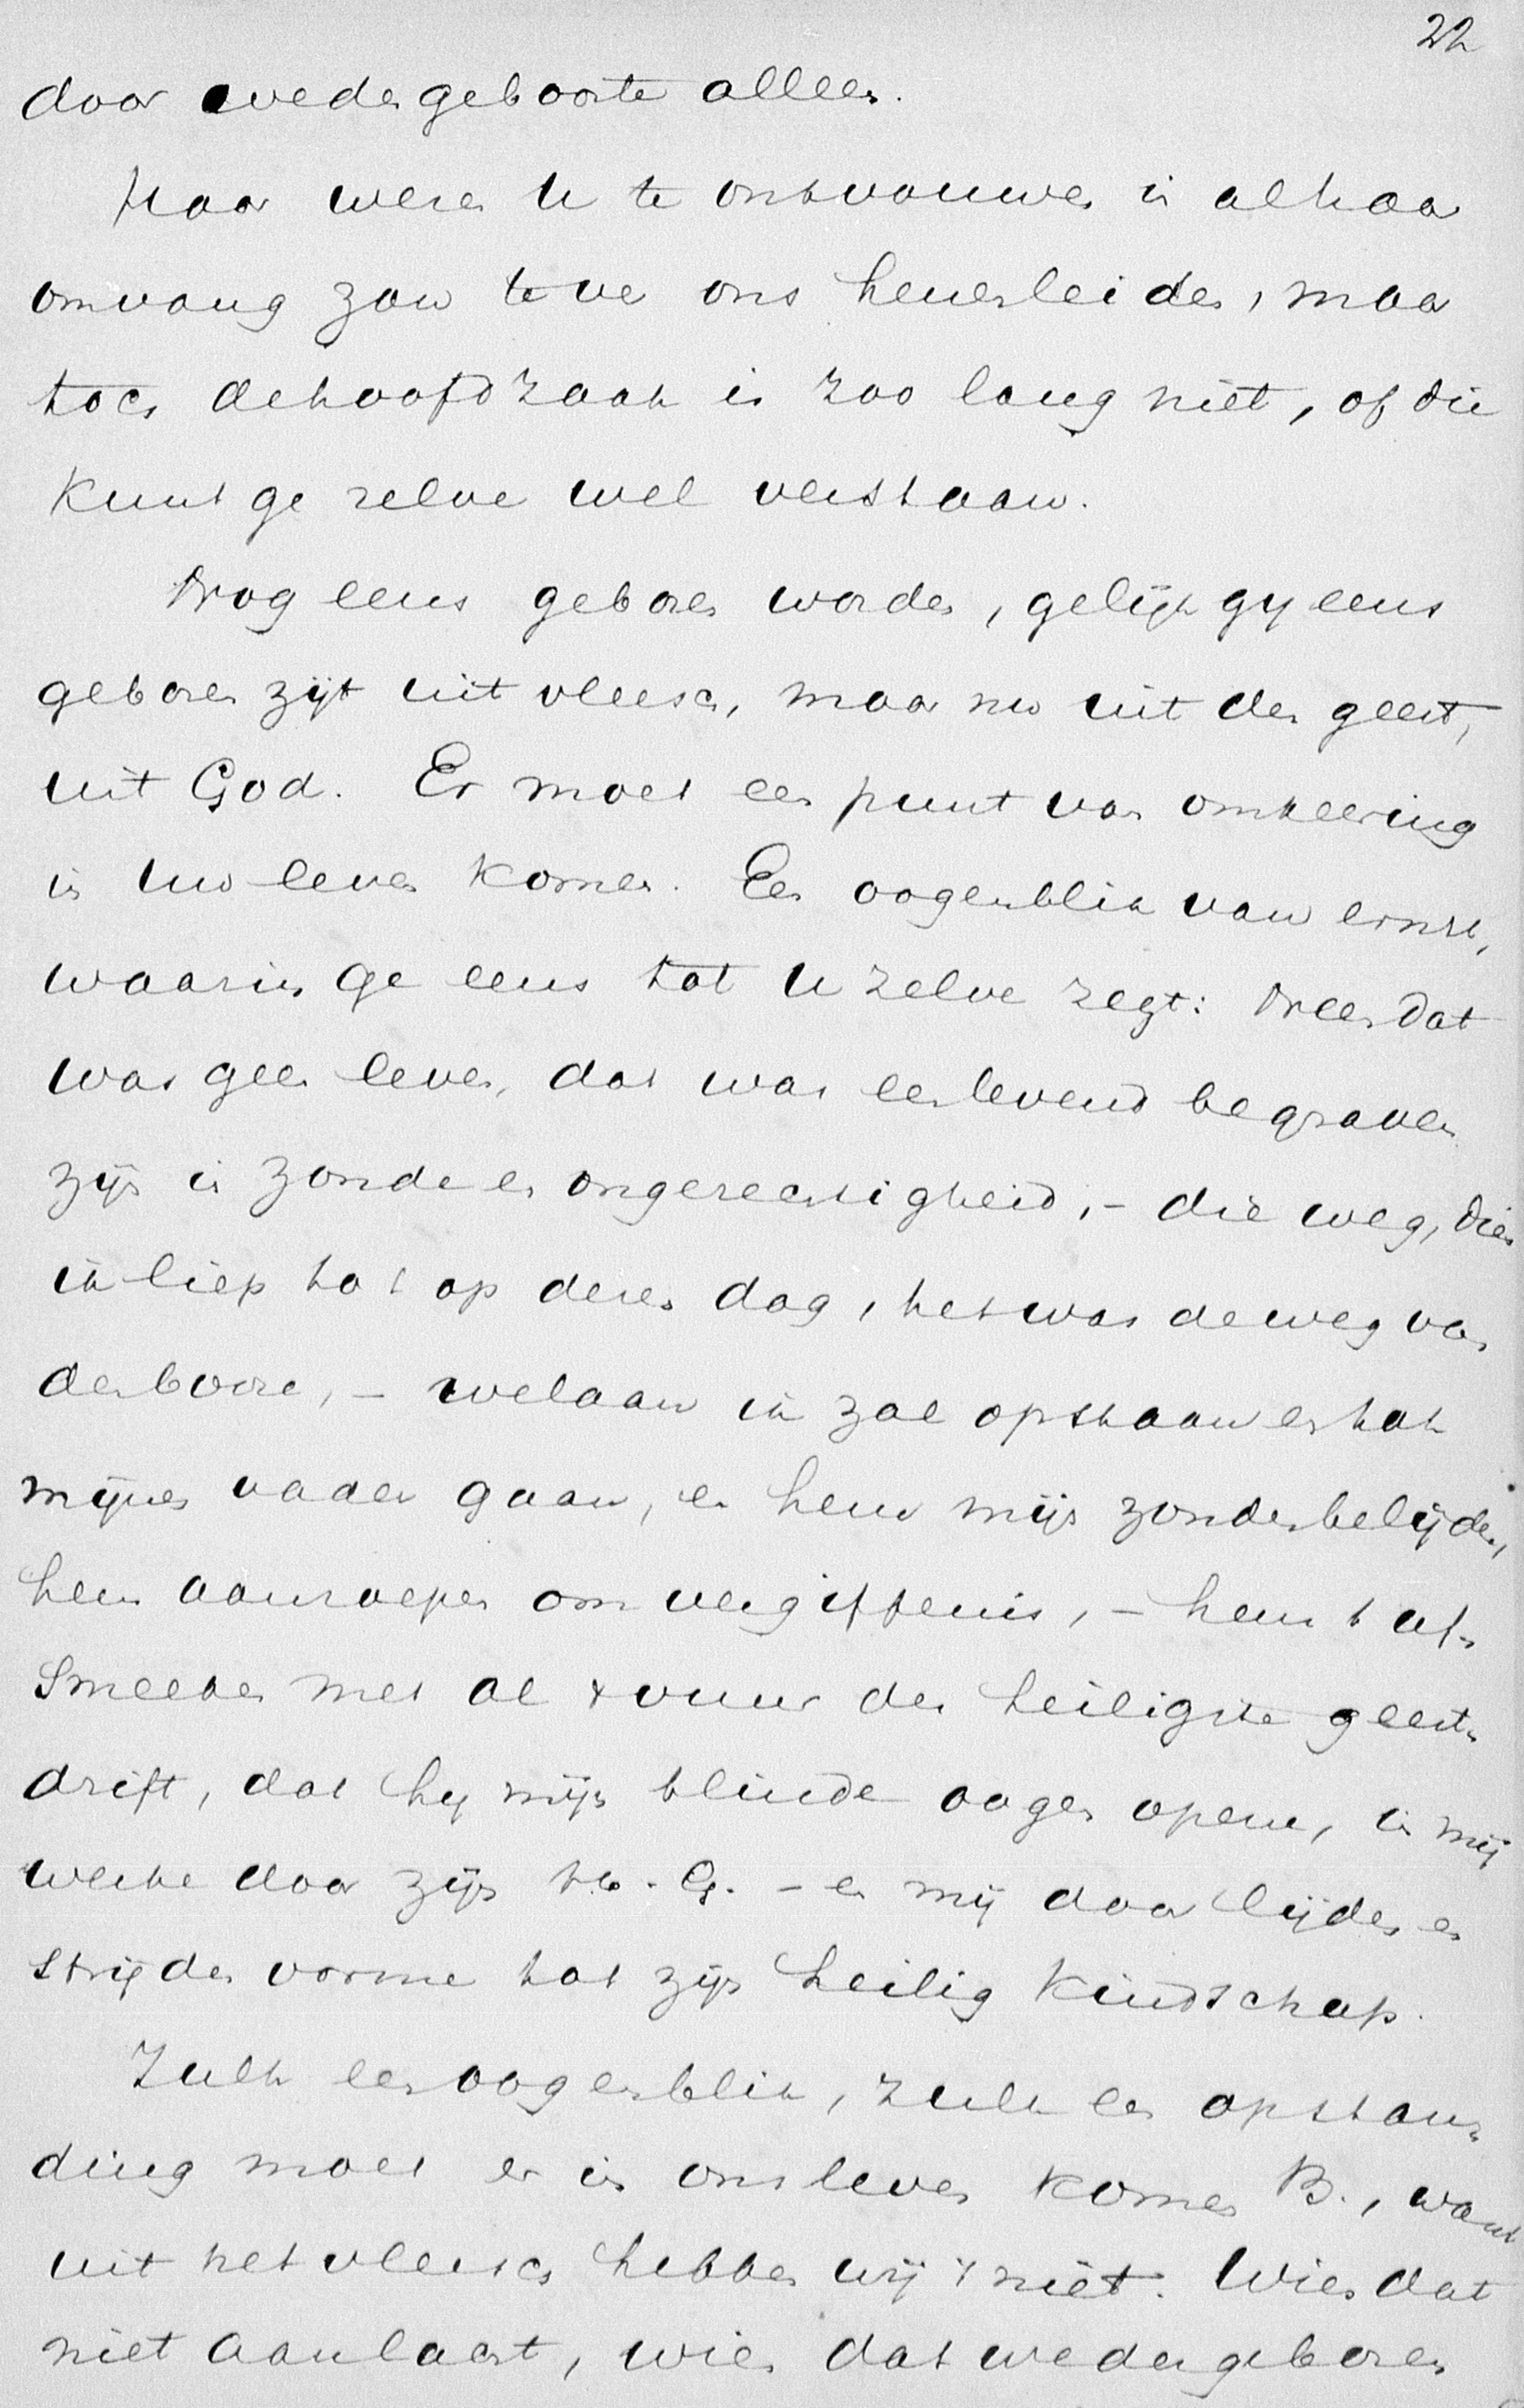 22
door wedergeboorte alleen.
Haar wezen U te ontvouwen in al haar
omvang zou te ver ons heenleiden, maar
toch de hoofdzaak is zoo lang niet, of die
kunt ge zelve wel verstaan.
Nog eens geboren worden, gelijk gy eens
geboren zijt uit vleesch, maar nu uit den geest,
uit God. Er moet een punt van omkeering
in Uw leven komen. Een oogenblik van ernst,
waarin ge eens tot U zelve zegt: Neen dat
was geen leven, dat was een levend begraven
zijn in zonde en ongerechtigheid, – die weg, dien
ik liep tot op dezen dag, het was de weg van
den booze, – welaan ik zal opstaan en tot
mijnen vader gaan, en hem mijn zonden belijden,
hem aanroepen om vergiffenis, – hem 't af-
smeeken met al 't vuur der heiligste geest-
drift, dat hy mijn blinde oogen opene, in mij
werke door zijn H. G. – en mij door lijden en
strijden vorme tot zijn heilig kindschap.
Zulk een oogenblik, zulk een opstan-
ding moet er in ons leven komen B., want
uit het vleesch hebben wij 't niet. Wien dat
niet aanlacht, wien dat wedergeboren